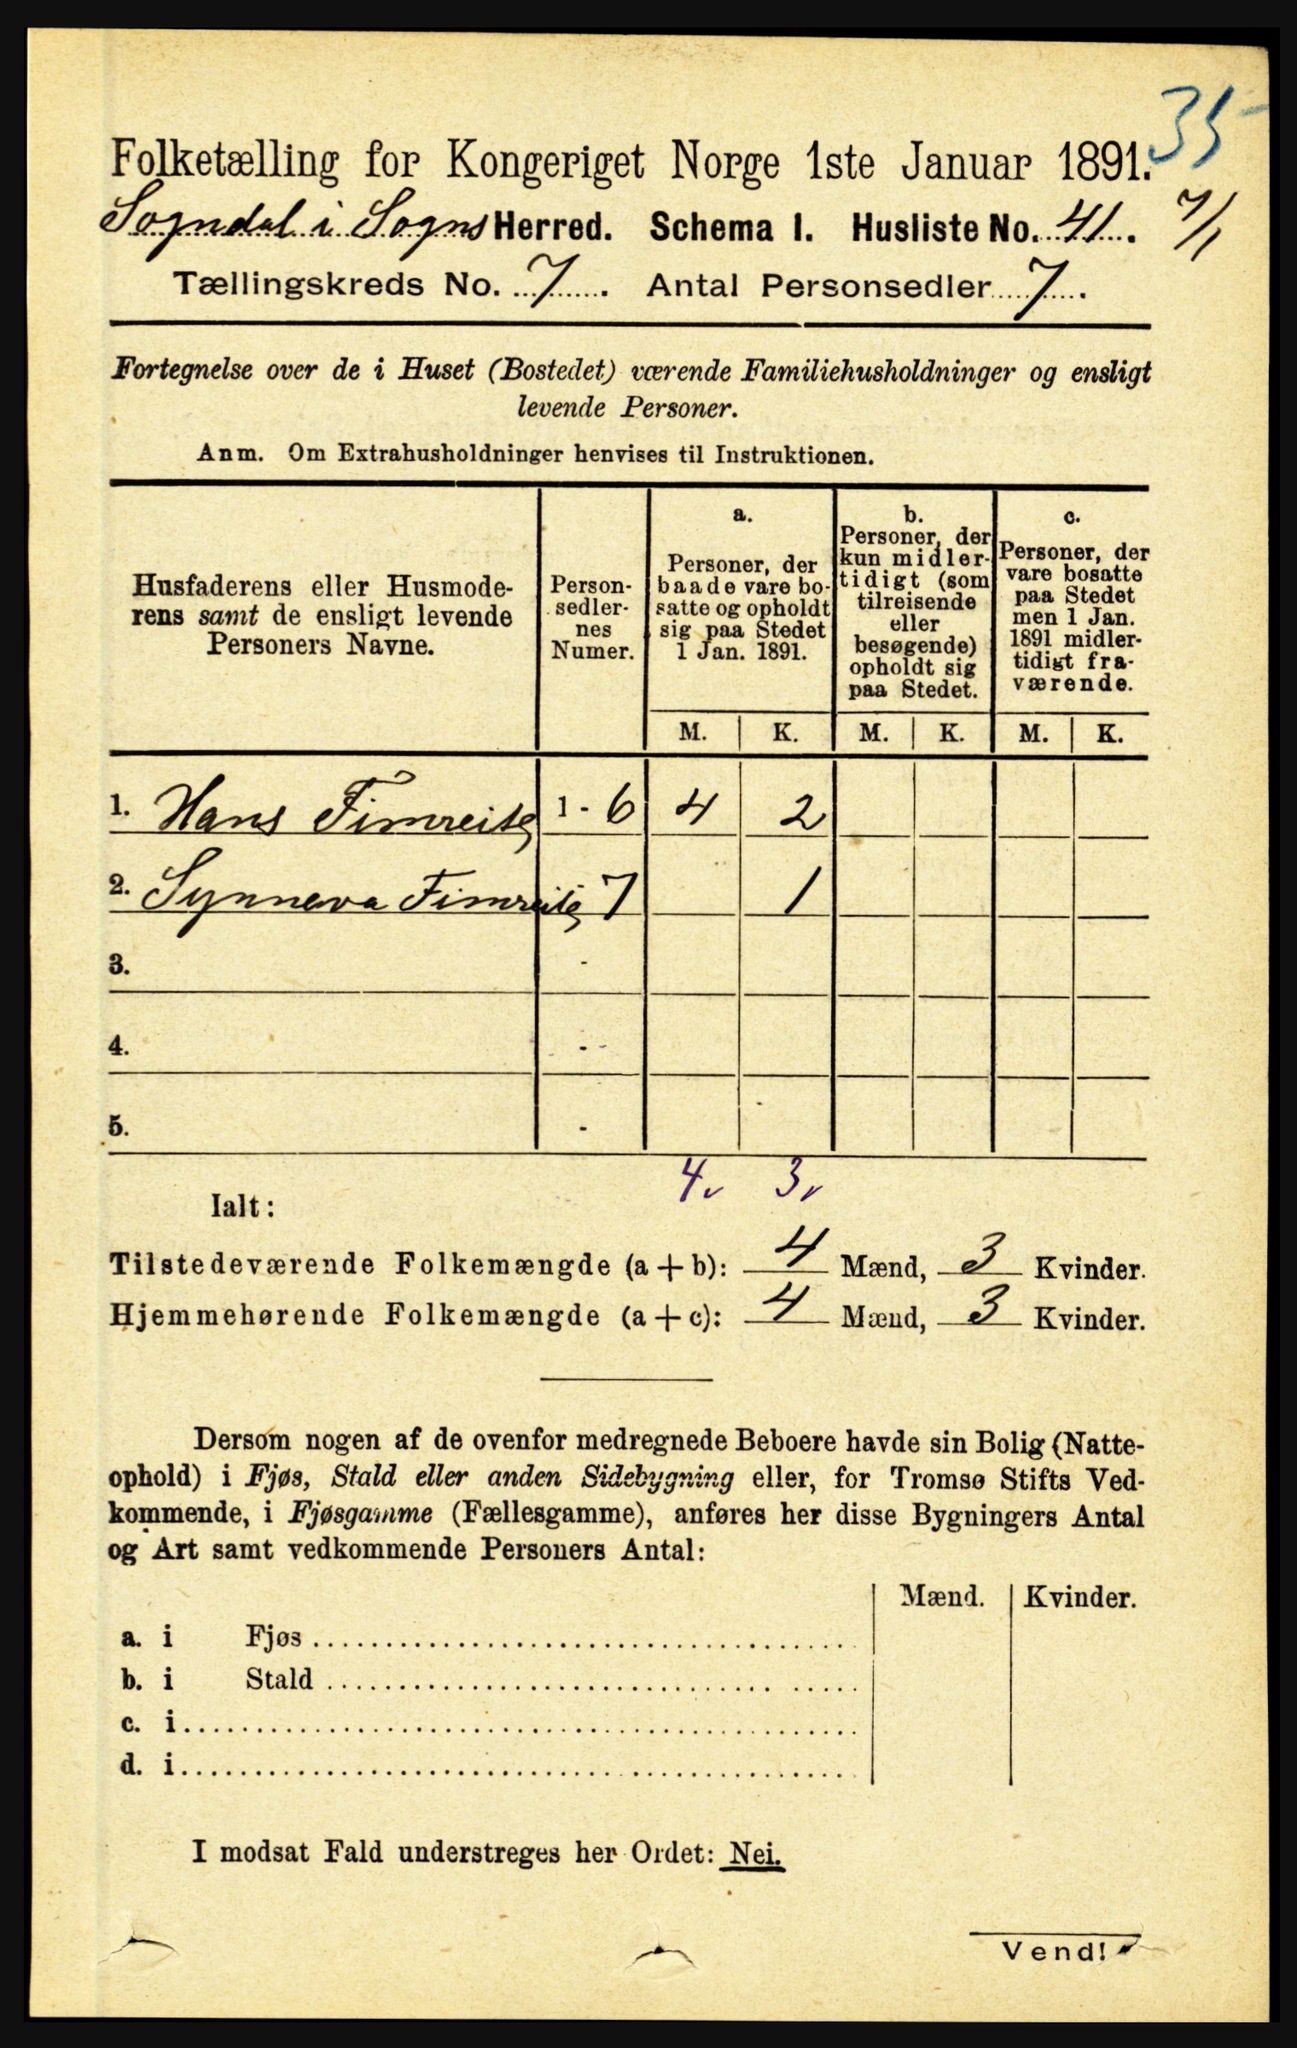 35
Folketælling for Kongeriget Norge 1ste Januar 1891.
Sogndal i Sogns Herred. Schema I. Husliste No. 41. 7/1
Tællingskreds No. 7. Antal Personsedler 7.
Fortegnelse over de i Huset (Bostedet) værende Familiehusholdninger og ensligt
levende Personer.
Anm. Om Extrahusholdninger henvises til Instruktionen.
Husfaderens eller Husmode-
rens samt de ensligt levende
Personers Navne.
Person-
sedler-
nes
Numer.
a.
Personer, der
baade vare bo-
satte og opholdt
sig paa Stedet
1 Jan. 1891.
b.
Personer, der
kun midler-
tidigt (som
tilreisende
eller
besøgende)
opholdt sig
paa Stedet.
c.
Personer, der
vare bosatte
paa Stedet
men 1 Jan.
1891 midler-
tidigt fra-
værende.
M. K. M. K. M. K.
1. Hans Fimreite 1 - 6 4 2
2. Synneva Fimreite 7 1
3. -
4. -
5. -
4 3
Ialt:
Tilstedeværende Folkemængde (a + b): 4 Mænd, 3 Kvinder.
Hjemmehørende Folkemængde (a + c): 4 Mænd, 3 Kvinder.
Dersom nogen af de ovenfor medregnede Beboere havde sin Bolig (Natte-
ophold) i Fjøs, Stald eller anden Sidebygning eller, for Tromsø Stifts Ved-
kommende, i Fjøsgamme (Fællesgamme), anføres her disse Bygningers Antal
og Art samt vedkommende Personers Antal:
Mænd. Kvinder.
a. i Fjøs
b. i Stald
c. i
d. i
I modsat Fald understreges her Ordet: Nei.
Vend!